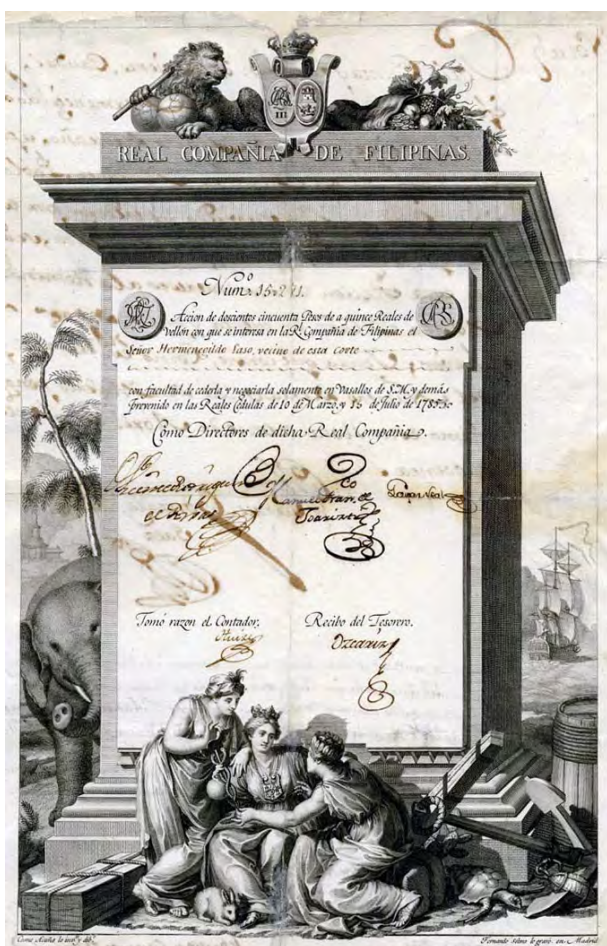 REAL COMPAÑIA DE FILIPINAS
III
Num.o 15281.
Accion de doscientos cincuenta Pesos de a quince Reales de
Vellón con que se interesa en la Rl. Compañia de Filipinas el
Señor Hermenegildo Laso, vecino de esta Corte
con facultad de cederla y negociarla solamente en Vasallos de S.M. y demás
prevenido en las Reales Cédulas de 10 de Marzo, y 15 de Julio de 1785.
Como Directores de dicha Real Compañia.
Tomó razon el Contador,
Recibo del Tesorero.
lo inv. y dib.
Fernando Selma lo grabó en Madrid